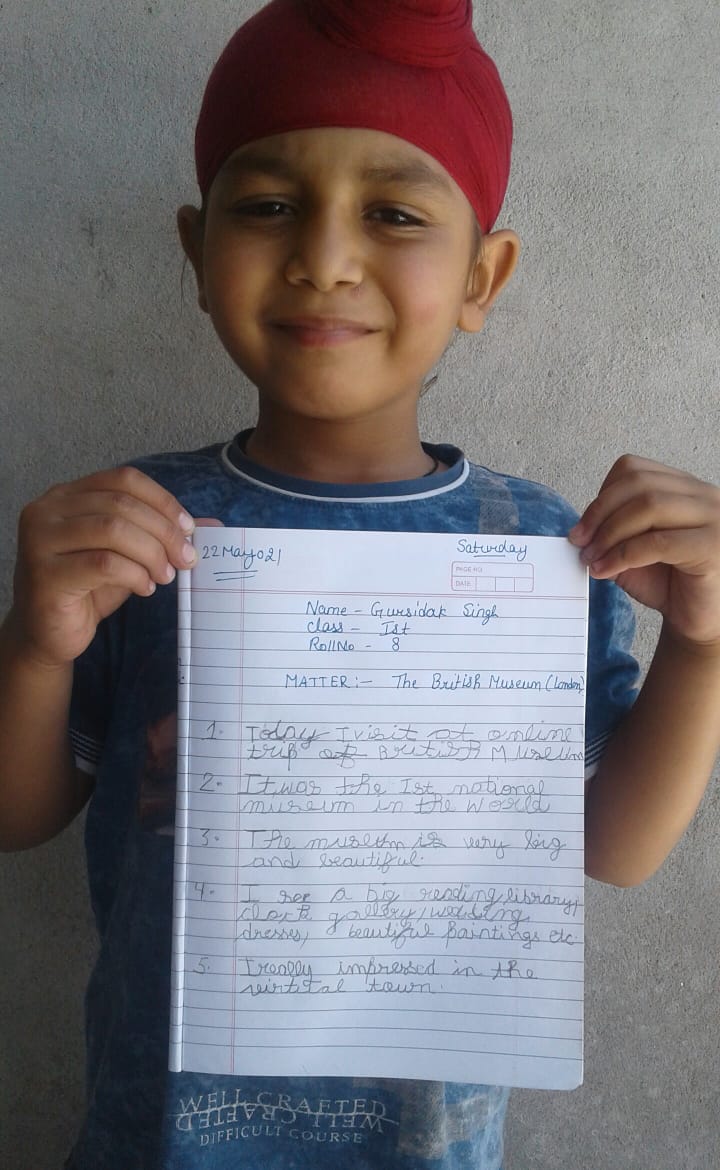 22 May 021
Saturday
PAGE NO.
DATE
Name - Gursidak Singh
Class - Ist
Roll No - 8
MATTER :- The British Museum (London)
1. Today I visit at online
trip of British Museum
2. It was the Ist national
museum in the World
3. The museum is very big
and beautiful.
4. I see a big reading library,
clock gallery, wedding
dresses, beautiful paintings etc.
5. I really impressed in the
town.
WELL CRAFTED
WELL CRAFTED
DIFFICULT COURSE